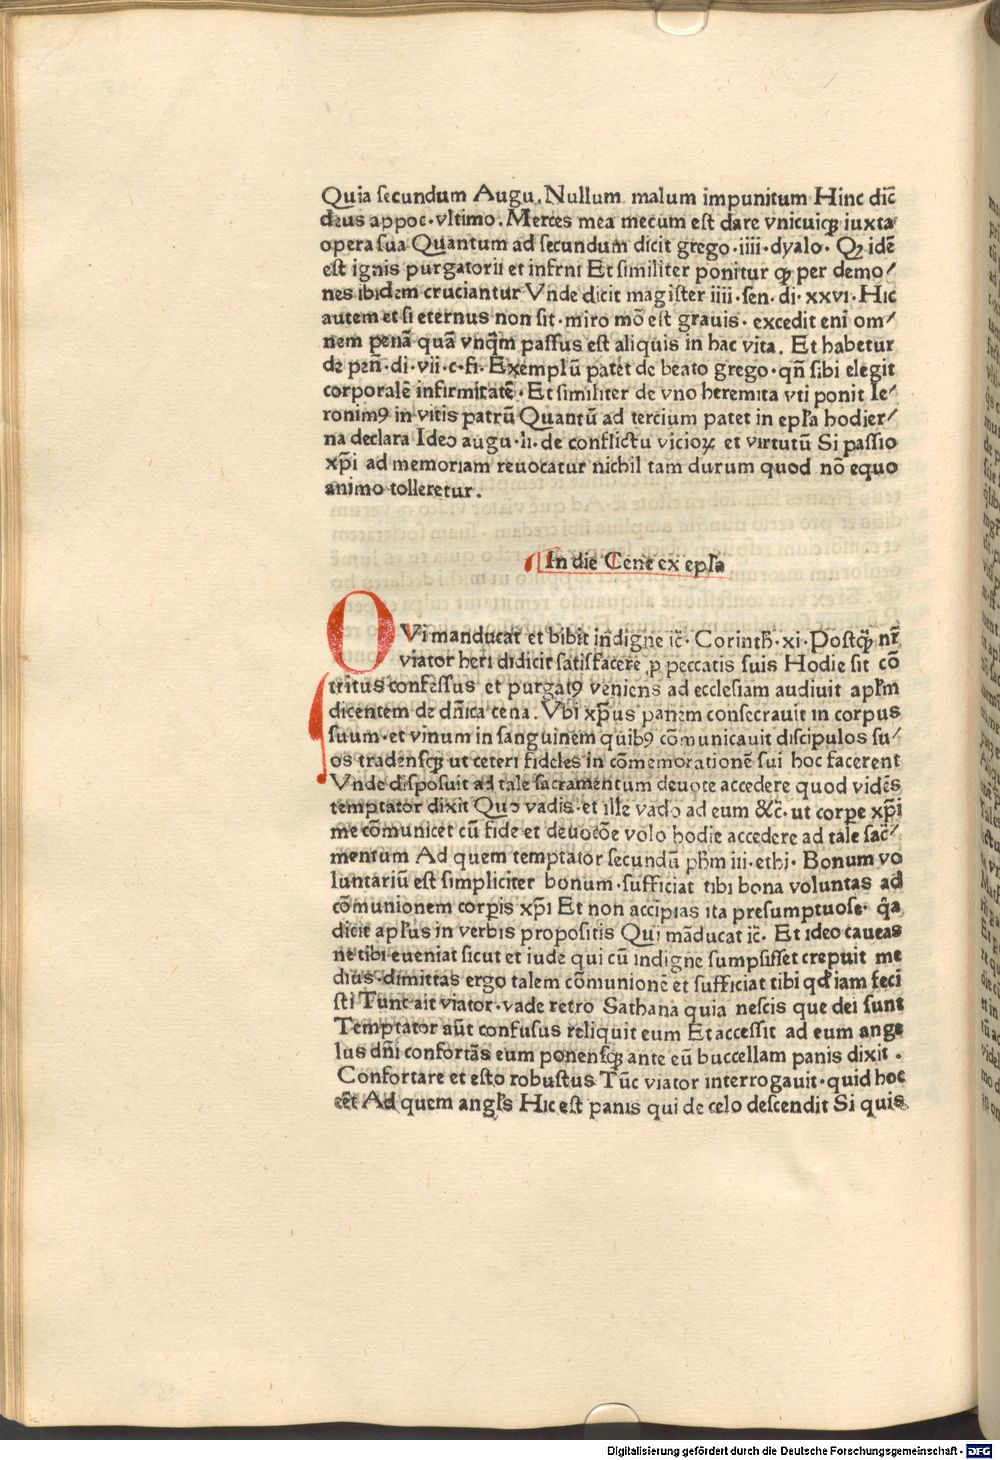 Quia ſecundum Augu. Nullum malum impunitum Hinc dic̄
deus appoc·vltimo. Merces mea mecum eſt dare vnicuiqꝫ iuxta
opera ſua Quantum ad ſecundum dicit grego·iiii·dyalo· Qꝫ idē
eſt ignis purgatorii et inferni Et ſimiliter ponitur ꝙ per demo⸗
nes ibidem cruciantur Vnde dicit magiſter iiii·ſen·di·xxvi·Hic
autem et ſi eternus non ſit·miro mō eſt grauis· excedit eni om⸗
nem penā quā vnq̄m paſſus eſt aliquis in hac vita. Et habetur
de pen̄·di·vii·c·fi·Exemplū patet de beato grego·qn̄ ſibi elegit
corporalē infirmitatē·Et ſimiliter de vno heremita vti ponit Ie⸗
ronimꝰ in vitis patrū Quantū ad tercium patet in epl̄a hodier⸗
na declara Ideo augu·li·de conflictu vicioꝝ et virtutū Si paſſio
xp̄i ad memoriam reuocatur nichil tam durum quod nō equo
animo tolleretur.
In die Cene ex epl̄a
QVi manducat et bibit indigne ic̄· Corinth̄·xi·Poſtqꝫ nr̄
viator heri didicit ſatiſfacere ꝓ peccatis ſuis Hodie ſit cō
tritus confeſſus et purgatꝰ veniens ad eccleſiam audiuit apl̄m
dicentem de dn̄ica cena. Vbi xp̄us panem conſecrauit in corpus
ſuum·et vinum in ſanguinem quibꝰ cōmunicauit diſcipulos ſu⸗
os tradenſqꝫ ut ceteri fideles in cōmemorationē ſui hoc facerent
Vnde diſpoſuit ad tale ſacramentum deuote accedere quod vidēs
temptator dixit Quo vadis·et ille vado ad eum &c̄·ut corpe xp̄i
me cōmunicet cū fide et deuotōe volo hodie accedere ad tale ſac̄⸗
mentum Ad quem temptator ſecundū ph̄m iii·ethi· Bonum vo
luntariū eſt ſimpliciter bonum·ſufficiat tibi bona voluntas ad
cōmunionem corpis xp̄i Et non accipias ita preſumptuoſe· q̄a
dicit apl̄us in verbis propoſitis Qui māducat ic̄· Et ideo caueas
ne tibi eueniat ſicut et iude qui cū indigne ſumpſiſſet crepuit me
dius·dimittas ergo talem cōmunionē et ſufficiat tibi qd̄ iam feci
ſti Tunc ait viator·vade retro Sathana quia neſcis que dei ſunt
Temptator aūt confuſus reliquit eum Et acceſſit ad eum ange
lus dn̄i confortās eum ponenſqꝫ ante eū buccellam panis dixit·
Confortare et eſto robuſtus Tūc viator interrogauit·quid hoc
eēt Ad quem angl̄s Hic eſt panis qui de celo deſcendit Si quis
Digitalisierung gefördert durch die Deutsche Forschungsgemeinschaft - DFG